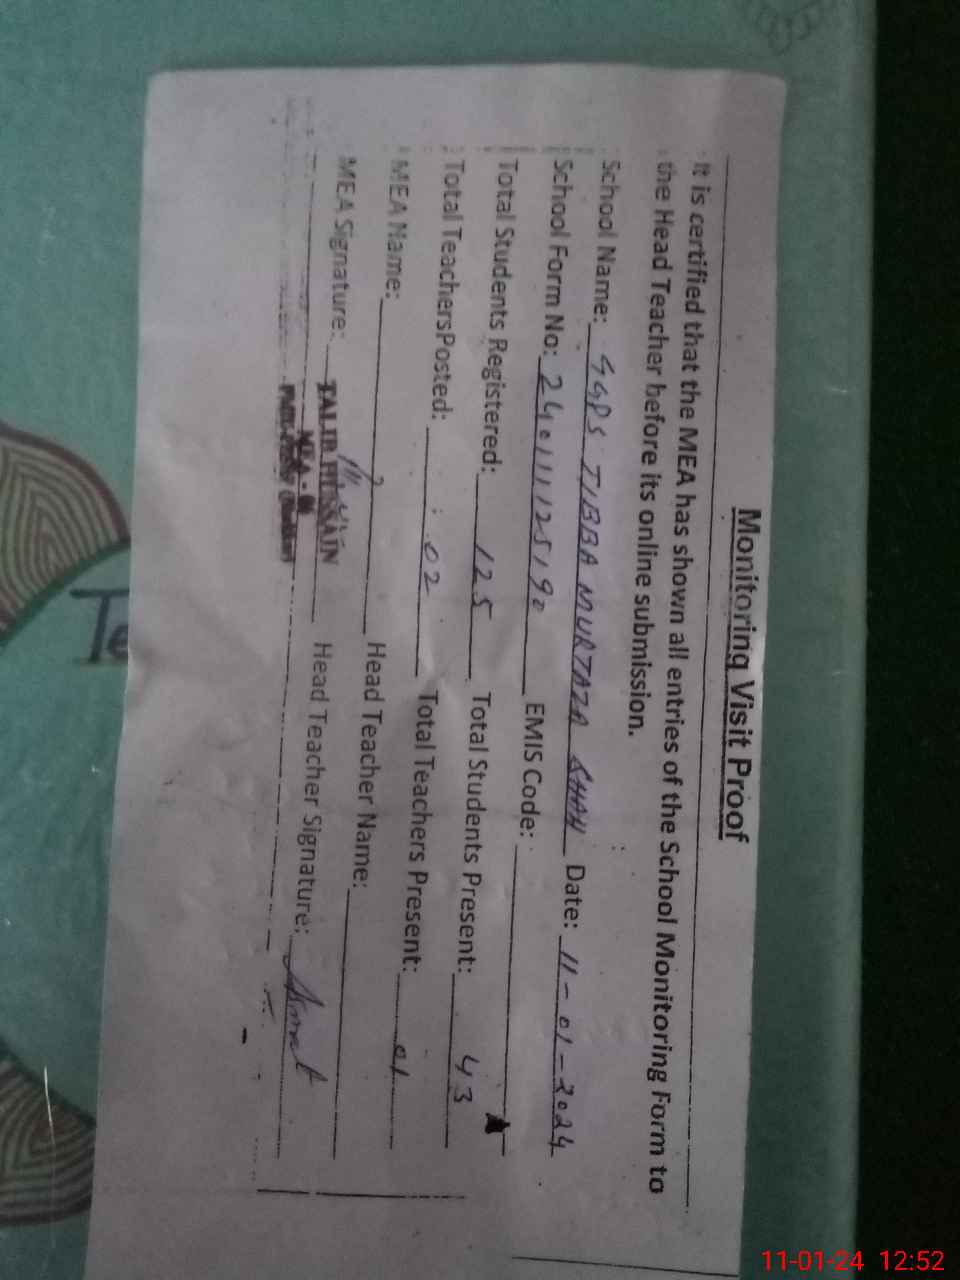 Monitoring Visit Proof
It is certified that the MEA has shown all entries of the School Monitoring Form to
the Head Teacher before its online submission.
School Name: GGPS TIBBA MURTAZA SHAH Date: 11-01-2024
School Form No: 240111125190 EMIS Code:
Total Students Registered: 125 Total Students Present: 43
Total TeachersPosted: 02 Total Teachers Present: 01
MEA Name: Head Teacher Name:
MEA Signature: Head Teacher Signature:
TALIB HUSSAIN
MEA -
11-01-24 12:52